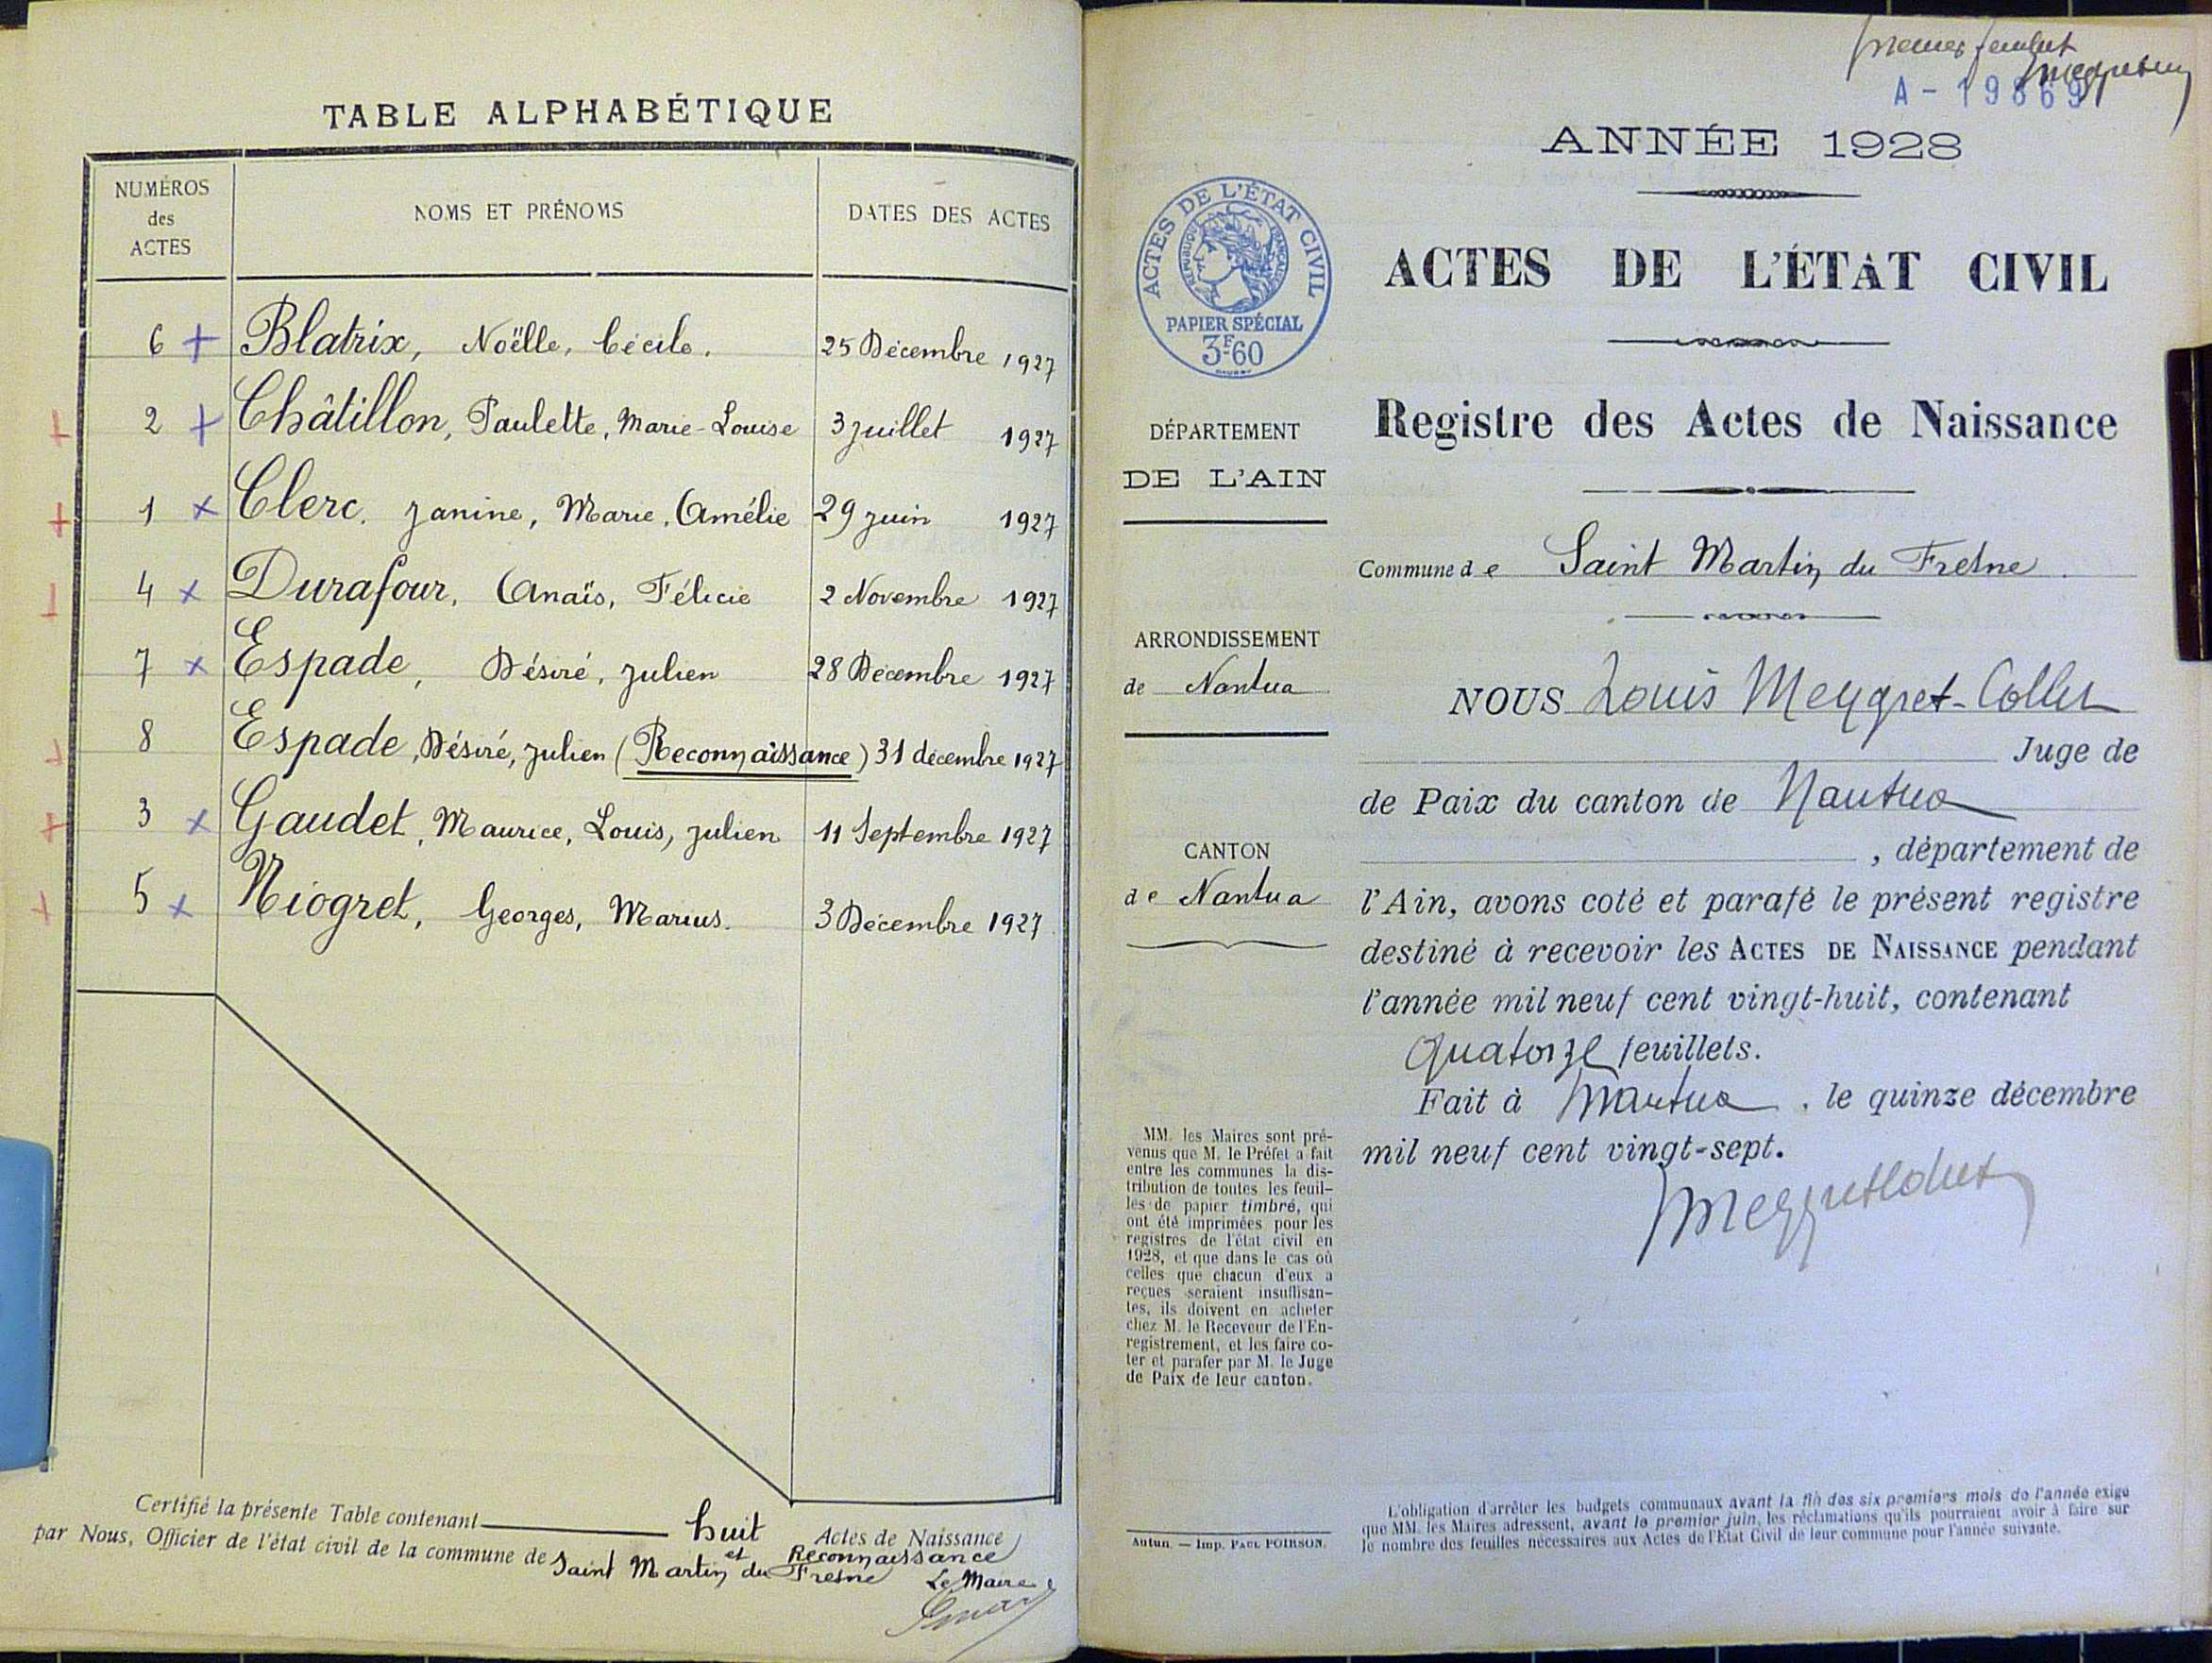 TABLE ALPHABÉTIQUE
NUMÉROS des ACTES NOMS ET PRÉNOMS DATES DES ACTES
6 + Blatrix, Noëlle, Cécile. 25 Décembre 1927
+ 2 + Châtillon, Paulette, Marie-Louise 3 juillet 1927
+ 1 x Clerc, Janine, Marie, Amélie 29 juin 1927
+ 4 x Durafour, Anaïs, Félicie 2 Novembre 1927
7 x Espade, Désiré, Julien 28 Décembre 1927
+ 8 Espade, Désiré, Julien (Reconnaissance) 31 décembre 1927
+ 3 x Gaudet, Maurice, Louis, Julien 11 Septembre 1927
+ 5 x Niogret, Georges, Marius. 3 Décembre 1927
Certifié la présente Table contenant huit Actes de Naissance
et Reconnaissance
par Nous, Officier de l'état civil de la commune de Saint Martin du Fresne
Le Maire
premier feuillet
A - 19869
ANNÉE 1928
ACTES DE L'ÉTAT CIVIL
RÉPUBLIQUE FRANÇAISE
PAPIER SPÉCIAL
3F60
ACTES DE L'ÉTAT CIVIL
Registre des Actes de Naissance
DÉPARTEMENT
DE L'AIN
Commune de Saint Martin du Fresne
ARRONDISSEMENT
de Nantua
CANTON
de Nantua
NOUS Louis Meygret-Collet
Juge de
de Paix du canton de Nantua
, département de
l'Ain, avons coté et parafé le présent registre
destiné à recevoir les ACTES DE NAISSANCE pendant
l'année mil neuf cent vingt-huit, contenant
Quatorze feuillets.
Fait à Nantua, le quinze décembre
mil neuf cent vingt-sept.
MM. les Maires sont pré-
venus que M. le Préfet a fait
entre les communes la dis-
tribution de toutes les feuil-
les de papier timbré, qui
ont été imprimées pour les
registres de l'état civil en
1928, et que dans le cas où
celles que chacun d'eux a
reçues seraient insuffisan-
tes, ils doivent en acheter
chez M. le Receveur de l'En-
registrement, et les faire co-
ter et parafer par M. le Juge
de Paix de leur canton.
Autun. — Imp. PAUL POIRSON.
L'obligation d'arrêter les budgets communaux avant la fin des six premiers mois de l'année exige
que MM. les Maires adressent, avant le premier juin, les réclamations qu'ils pourraient avoir à faire sur
le nombre des feuilles nécessaires aux Actes de l'État Civil de leur commune pour l'année suivante.